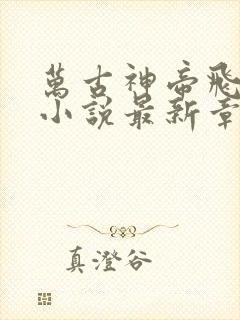 萬古神帝飛
小說最新章
真澄谷